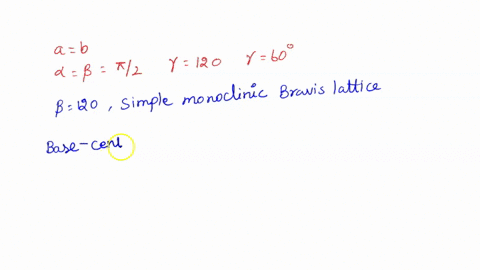 a = b
α = β = π/2 γ = 120 γ = 60°
β = 120, Simple monoclinic Bravis lattice
Base-cent